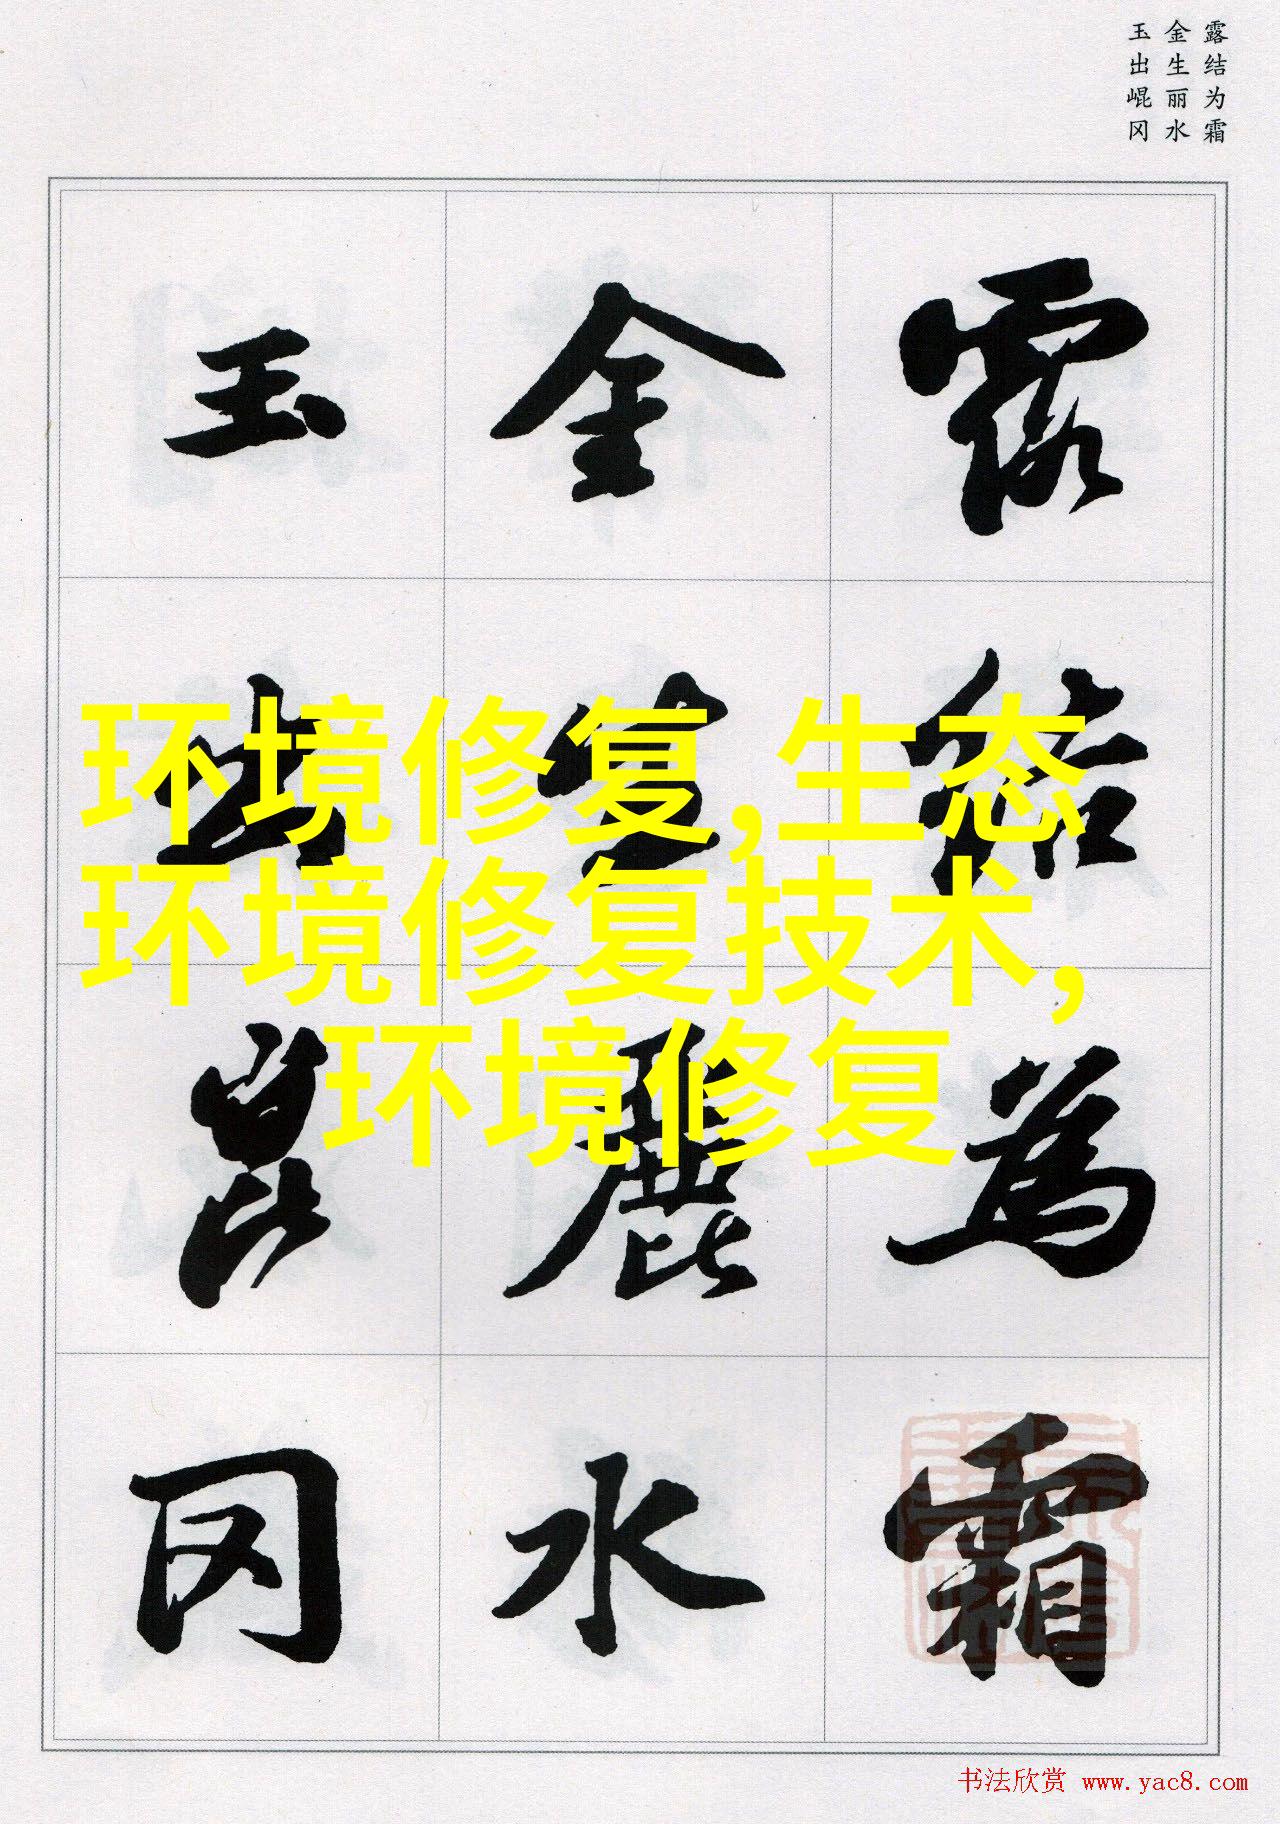 露结为霜
金生丽水
玉出崐冈
露結為霜
金生麗水
玉出崑冈
环境修复,生态
环境修复技术,
环境修复
书法欣赏 www.yac8.com